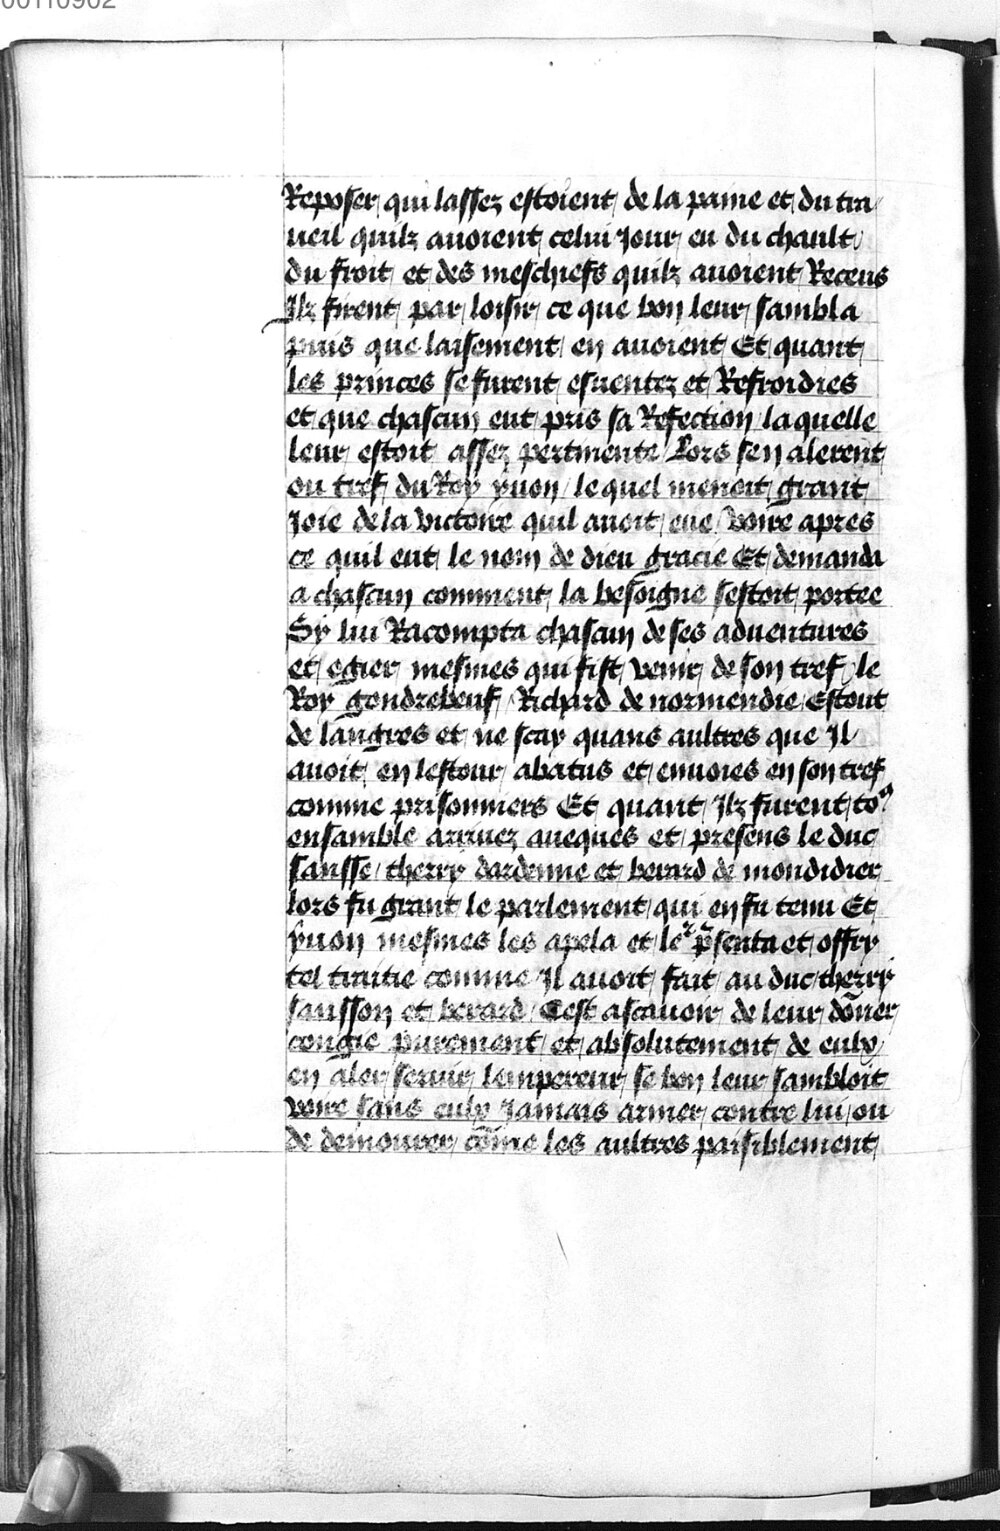 00110902
Reposer qui lassez estoient de la paine et du tra
ueil quilz auoient celui Jour eu du chault
du froit et des meschiefs quilz auoient Receus
Ilz firent par loisir ce que bon leur sambla
puis que laisement en auoient Et quant
les princes se furent esuentez et Refroidies
et que chascun eut pris sa Refection laquelle
leur estoit assez pertinente Lors sen alerent
ou tref du Roy yuon lequel menoit grant
Joie de la victoire quil auoit eue voire apres
ce quil eut le nom de dieu gracie Et demanda
a chascun comment la besoigne sestoit portee
Sy lui Racompta chascun de ses aduentures
et egier mesmes qui fist venir de son tref le
Roy gondrebeuf Richard de normendie Estout
de langres et ne scay quans aultres que Jl
auoit en lestour abatus et enuoies en son tref
comme prisonniers Et quant Jlz furent to9
ensamble arriuez aueques et presens le duc
sansse therry dardenne et berard de mondidier
lors fu grant le parlement qui en fu tenu Et
yuon mesmes les apela et le² p̄senta et offry
tel traitie comme Jl auoit fait au duc therry
sansson et berard Cest ascauoir de leur dōner
congie purement et absolutement de eulx
en aler seruir lempereur se bon leur sambloit
voire sans eulx Jamais armer contre lui ou
de demourer cōme les aultres paisiblement